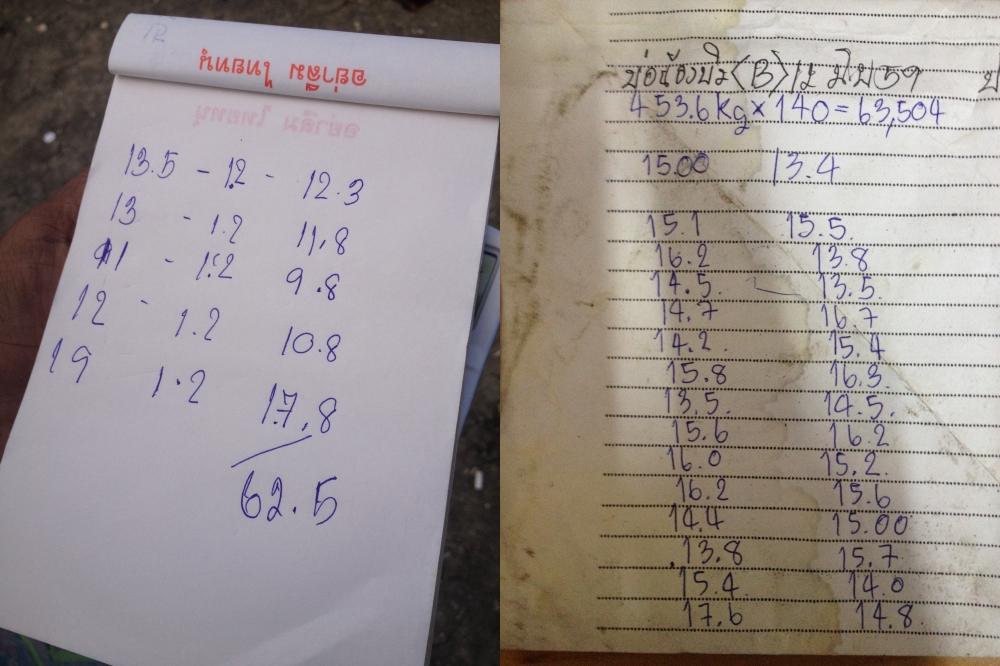 อย่าลืม ไทยทนุ
13.5 - 1.2 - 12.3
13 - 1.2 11.8
11 - 1.2 9.8
12 - 1.2 10.8
19 1.2 17.8
62.5
<B> 12 มี.ย 59
453.6 kg × 140 = 63,504
15.00 13.4
15.1 15.5
16.2 13.8
14.5 13.5
14.7 16.7
14.2 15.4
15.8 16.3
13.5 14.5
15.6 16.2
16.0 15.2
16.2 15.6
14.4 15.00
13.8 15.7
15.4 14.0
17.6 14.8